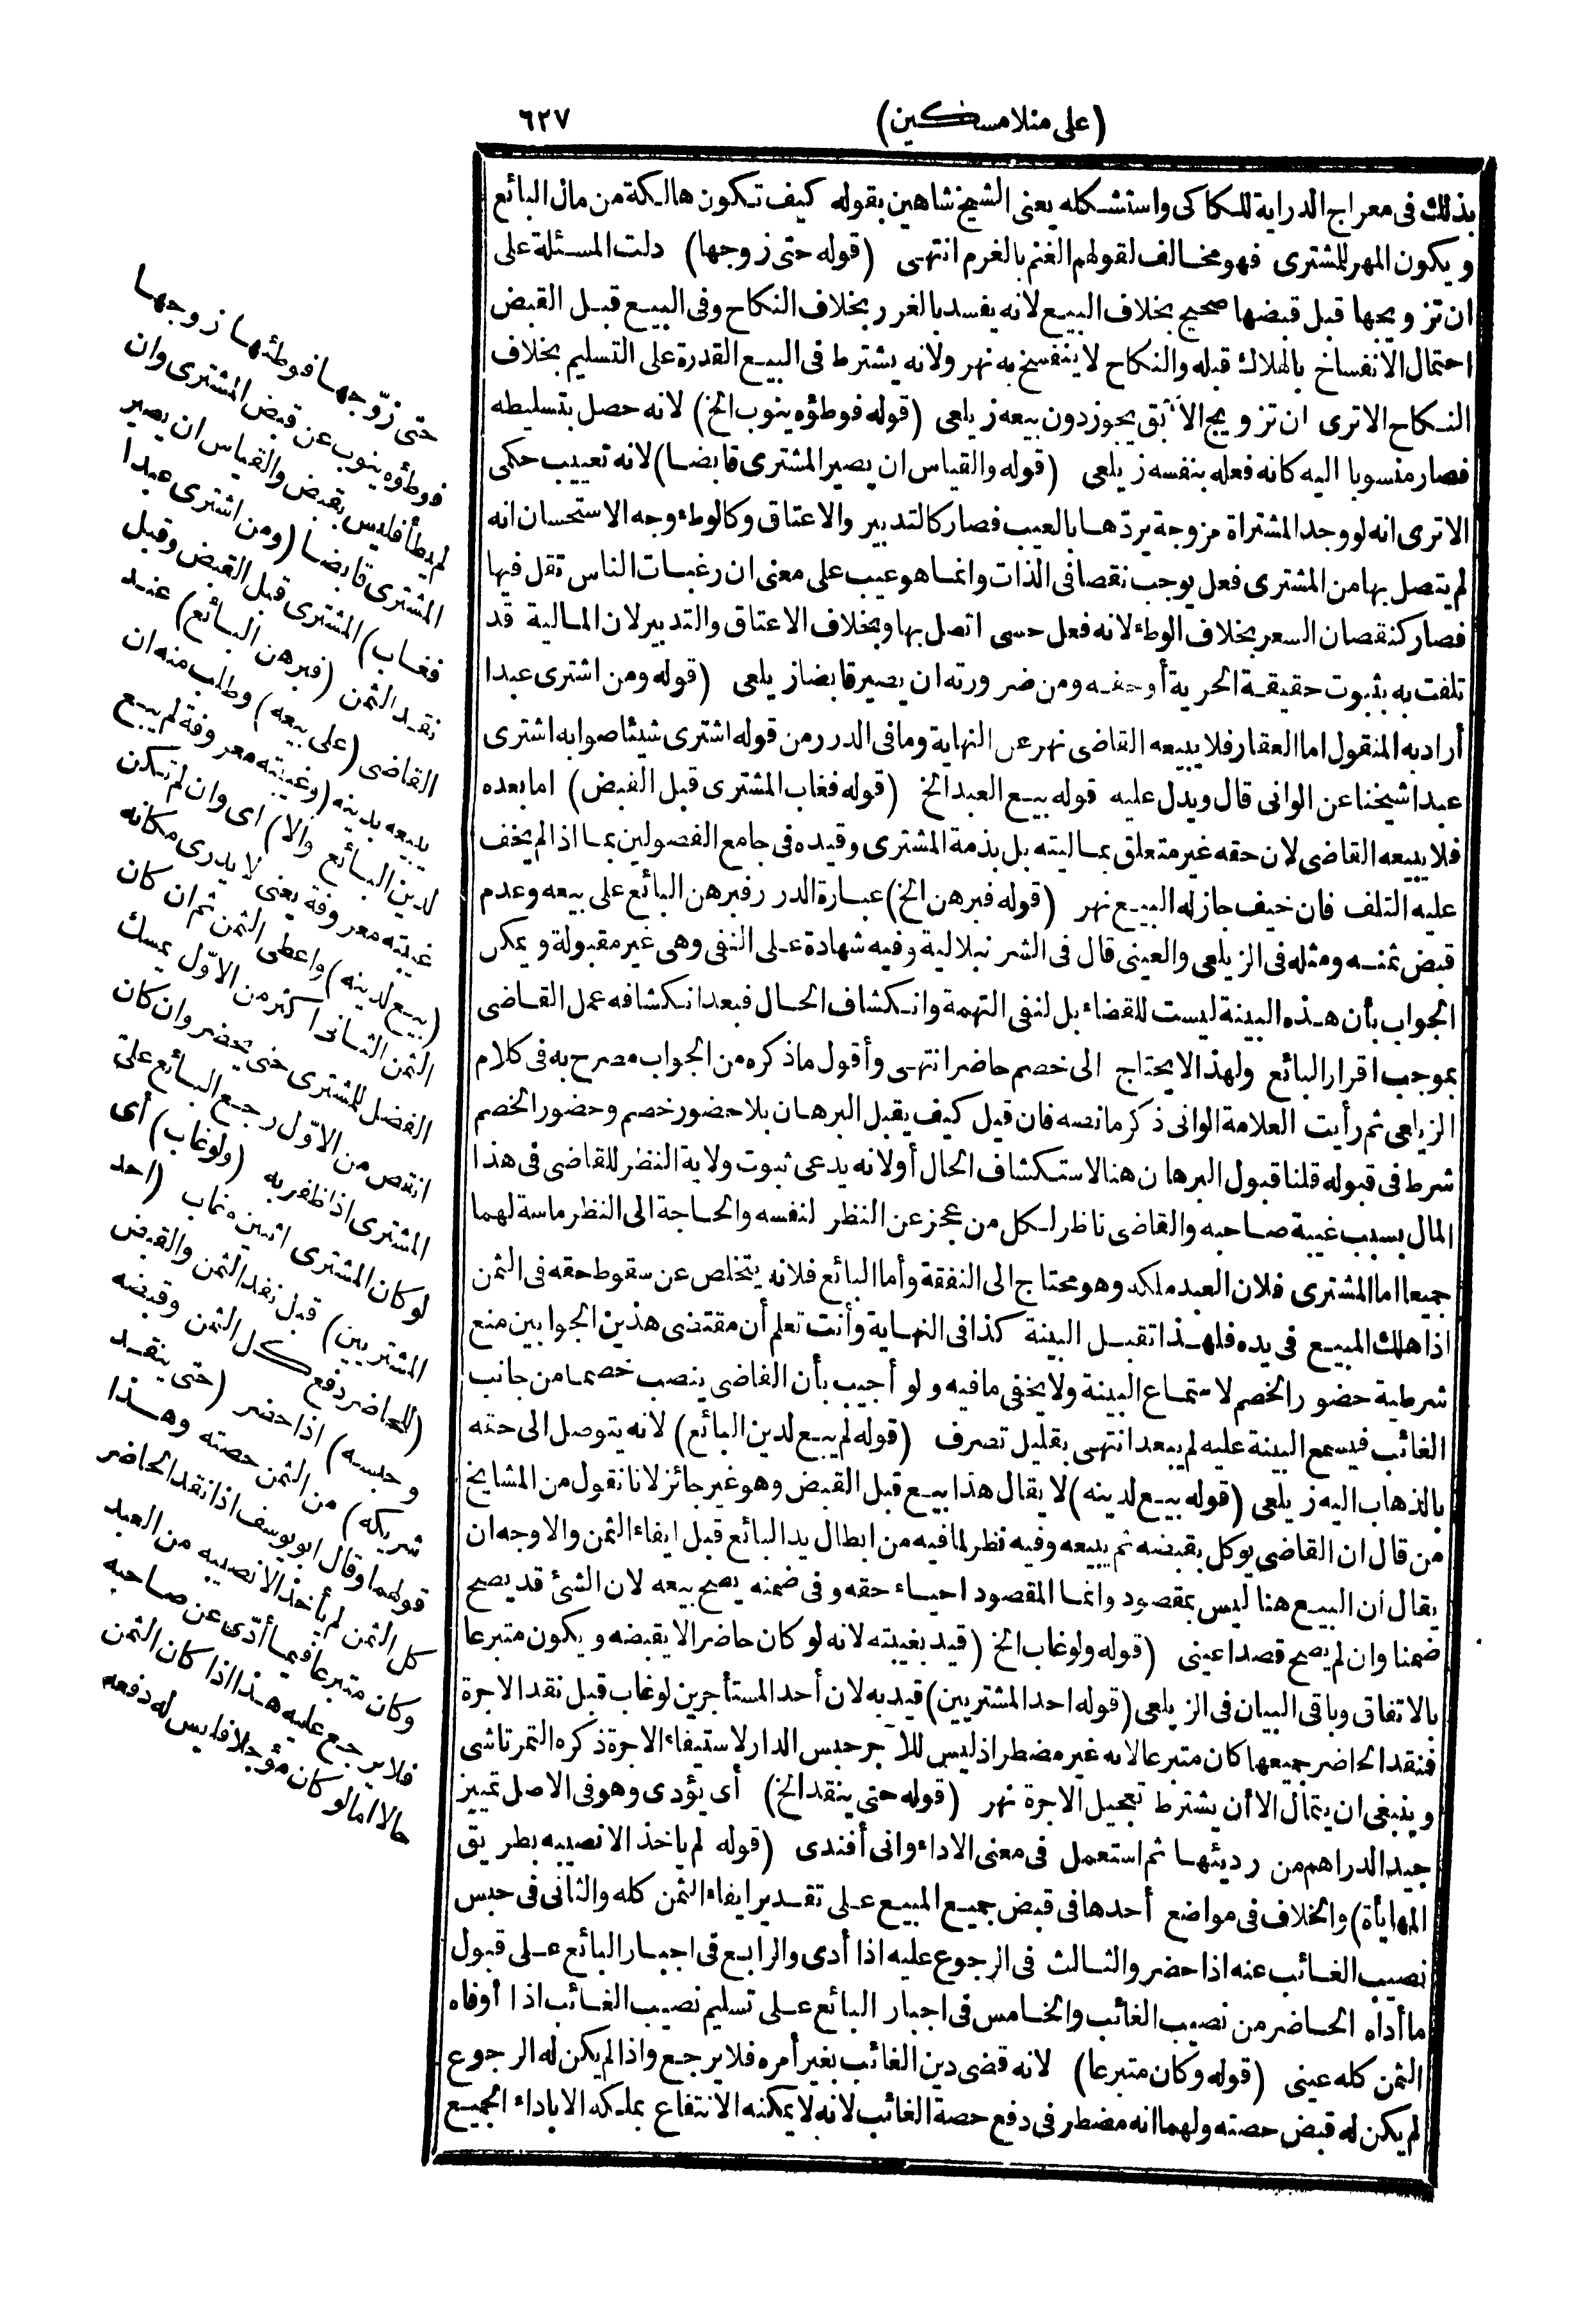 (على منلا مسكين)
٦٢٧
بذلك فى معراج الدراية للكاكى واستشكله يعنى الشيخ شاهين بقوله كيف تكون هالكة من مال البائع
ويكون المهر للمشترى فهو مخالف لقولهم الغنم بالغرم انتهى (قوله حتى زوجها) دلت المسئلة على
ان تزويجها قبل قبضها صحيح بخلاف البيع لانه يفسد بالغرر بخلاف النكاح وفى البيع قبل القبض
احتمال الانفساخ بالهلاك قبله والنكاح لا ينفسخ به نهر ولانه يشترط فى البيع القدرة على التسليم بخلاف
النكاح الاترى ان تزويج الآبق يجوز دون بيعه زيلعى (قوله فوطؤه ينوب الخ) لانه حصل بتسليطه
فصار منسوبا اليه كانه فعله بنفسه زيلعى (قوله والقياس ان يصير المشترى قابضا) لانه تعييب حكمى
الاترى انه لو وجد المشتراة مزوجة يردّها بالعيب فصار كالتدبير والاعتاق وكالوطء وجه الاستحسان انه
لم يتصل بها من المشترى فعل يوجب نقصا فى الذات وانما هو عيب على معنى ان رغبات الناس تقل فيها
فصار كنقصان السعر بخلاف الوطء لانه فعل حسى اتصل بها وبخلاف الاعتاق والتدبير لان المالية قد
تلفت به بثبوت حقيقة الحرية أو حقه ومن ضرورته ان يصير قابضا زيلعى (قوله ومن اشترى عبدا
أراد به المنقول اما العقار فلا يبيعه القاضى نهر عن النهاية وما فى الدرر من قوله اشترى شيئا صوابه اشترى
عبدا شيخنا عن الوانى قال ويدل عليه قوله بيع العبد الخ (قوله فغاب المشترى قبل القبض) اما بعده
فلا يبيعه القاضى لان حقه غير متعلق بماليته بل بذمة المشترى وقيده فى جامع الفصولين بما اذا لم يخف
عليه التلف فان خيف جاز له البيع نهر (قوله فبرهن الخ) عبارة الدرر فبرهن البائع على بيعه وعدم
قبض ثمنه ومثله فى الزيلعى والعينى قال فى الشرنبلالية وفيه شهادة على النفى وهى غير مقبولة ويمكن
الجواب بأن هذه البينة ليست للقضاء بل لنفى التهمة وانكشاف الحال فبعد انكشافه عمل القاضى
بموجب اقرار البائع ولهذا لا يحتاج الى خصم حاضر انتهى وأقول ما ذكره من الجواب مصرح به فى كلام
الزيلعى ثم رأيت العلامة الوانى ذكر ما نصه فان قيل كيف يقبل البرهان بلا حضور خصم وحضور الخصم
شرط فى قبوله قلنا قبول البرهان هنا لاستكشاف الحال أولانه يدعى ثبوت ولاية النظر للقاضى فى هذا
المال بسبب غيبة صاحبه والقاضى ناظر لكل من عجز عن النظر لنفسه والحاجة الى النظر ماسة لهما
جميعا اما المشترى فلان العبد ملكه وهو محتاج الى النفقة وأما البائع فلانه يتخلص عن سقوط حقه فى الثمن
اذا هلك المبيع فى يده فلهذا تقبل البينة كذا فى النهاية وأنت تعلم أن مقتضى هذين الجوابين منع
شرطية حضور الخصم لاستماع البينة ولا يخفى ما فيه ولو أجيب بأن القاضى ينصب خصما من جانب
الغائب فيسمع البينة عليه لم يبعد انتهى بقليل تصرف (قوله لم يبع لدين البائع) لانه يتوصل الى حقه
بالذهاب اليه زيلعى (قوله بيع لدينه) لا يقال هذا بيع قبل القبض وهو غير جائز لانا نقول من المشايخ
من قال ان القاضى يوكل بقبضه ثم يبيعه وفيه نظر لما فيه من ابطال يد البائع قبل ايفاء الثمن والاوجه ان
يقال أن البيع هنا ليس بمقصود وانما المقصود احياء حقه وفى ضمنه يصح بيعه لان الشئ قد يصح
ضمنا وان لم يصح قصدا عينى (قوله ولو غاب الخ (قيد بغيبته لانه لو كان حاضرا لا يقبضه ويكون متبرعا
بالاتفاق وباقى البيان فى الزيلعى (قوله احد المشتريين) قيد به لان أحد المستأجرين لو غاب قبل نقد الاجرة
فنقد الحاضر جميعها كان متبرعا لانه غير مضطر اذ ليس للآجر حبس الدار لاستيفاء الاجرة ذكره التمرتاشى
وينبغى ان يقال الا أن يشترط تعجيل الاجرة نهر (قوله حتى ينقد الخ) أى يؤدى وهو فى الاصل تمييز
جيد الدراهم من رديئها ثم استعمل فى معنى الاداء وانى أفندى (قوله لم ياخذ الا نصيبه بطريق
المهايأة) والخلاف فى مواضع أحدها فى قبض جميع المبيع على تقدير ايفاء الثمن كله والثانى فى حبس
نصيب الغائب عنه اذا حضر والثالث فى الرجوع عليه اذا أدى والرابع فى اجبار البائع على قبول
ما أداه الحاضر من نصيب الغائب والخامس فى اجبار البائع على تسليم نصيب الغائب اذا أوفاه
الثمن كله عينى (قوله وكان متبرعا) لانه قضى دين الغائب بغير أمره فلا يرجع واذا لم يكن له الرجوع
لم يكن له قبض حصته ولهما انه مضطر فى دفع حصة الغائب لانه لا يمكنه الانتفاع بملكه الا باداء الجميع
حتى زوّجها فوطئها زوجها
فوطؤه ينوب عن قبض المشترى وان
لم يطأ فليس بقبض والقياس ان يصير
المشترى قابضا (ومن اشترى عبدا
فغاب) المشترى قبل القبض وقبل
نقد الثمن (فبرهن البائع) عند
القاضى (على بيعه) وطلب منه ان
يبيعه بدينه (وغيبته معروفة لم يبع
لدين البائع والا) اى وان لم تكن
غيبته معروفة يعنى لا يدرى مكانه
(بيع لدينه) واعطى الثمن ثم ان كان
الثمن الثانى اكثر من الاوّل يمسك
الفضل للمشترى حتى يحضر وان كان
انقص من الاوّل رجع البائع على
المشترى اذا ظفر به (ولو غاب) أى
لو كان المشترى اثنين وغاب (احد
المشتريين) قبل نقد الثمن والقبض
(للحاضر دفع كل الثمن وقبضه
وحبسه) اذا حضر (حتى ينقد
شريكه) من الثمن حصته وهذا
قولهما وقال ابو يوسف اذا نقد الحاضر
كل الثمن لم يأخذ الا نصيبه من العبد
وكان متبرعا فيما أدّى عن صاحبه
فلا يرجع عليه هذا اذا كان الثمن
حالا اما لو كان مؤجلا فليس له دفعه